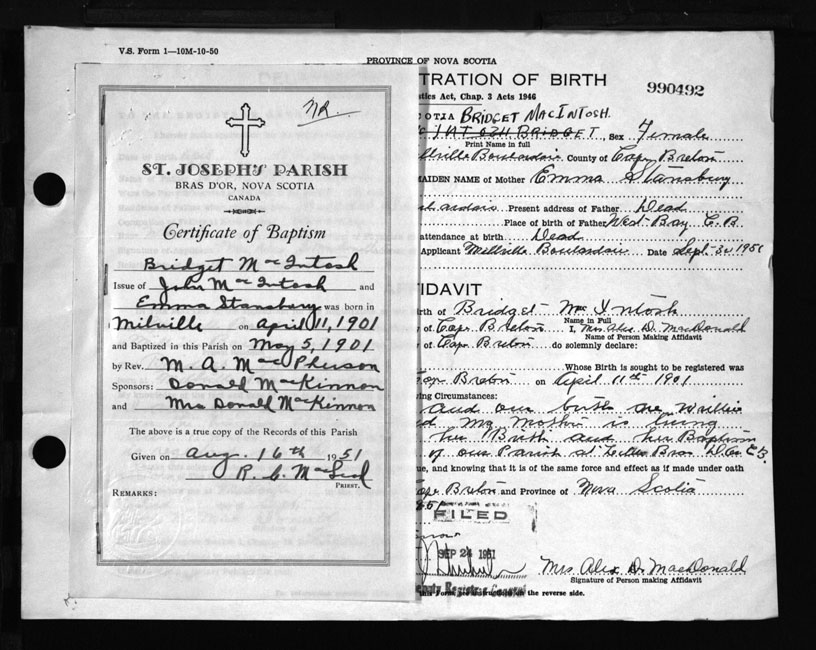 V.S. Form 1—10M-10-50
NR
ST. JOSEPH'S PARISH
BRAS D'OR, NOVA SCOTIA
CANADA
Certificate of Baptism
Bridget MacIntosh
Issue of John MacIntosh and
Emma Stansbury was born in
Milville on April 11, 1901
and Baptized in this Parish on May 5, 1901
by Rev. M. A. MacPherson
Sponsors: Donald MacKinnon
and Mrs Donald MacKinnon
The above is a true copy of the Records of this Parish
Given on Aug. 16th 1951
R. C. MacLeod
PRIEST.
REMARKS:
PROVINCE OF NOVA SCOTIA
TRATION OF BIRTH
990492
stics Act, Chap. 3 Acts 1946
COTIA BRIDGET MACINTOSH.
BRIDGET, Sex Female
Print Name in full
llville Boulardarie County of Cape Breton
MAIDEN NAME of Mother Emma Stansbury
Present address of Father Dead
Place of birth of Father West Bay C.B
attendance at birth Dead
Applicant Millville Boulardarie Date Sept 3 1951
FIDAVIT
irth of Bridget MacIntosh
Name in Full
of Cape Breton I, Mrs Alex D. MacDonald
Name of Person Making Affidavit
of Cape Breton do solemnly declare:
Whose Birth is sought to be registered was
Cape Breton on April 11th 1901
ing Circumstances:
and our birth are
is living
her Birth and her Baptism
of our Parish at Little Bras D'Or C.B.
ue, and knowing that it is of the same force and effect as if made under oath
Cape Breton and Province of Nova Scotia
FILED
SEP 24 1951
Deputy Registrar General
Mrs Alex D. MacDonald
Signature of Person making Affidavit
the reverse side.